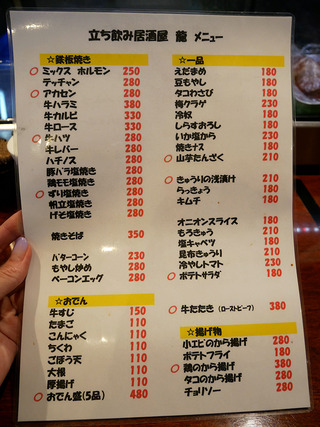 立ち飲み居酒屋 龍 メニュー
☆鉄板焼き
○ ミックス ホルモン 250
テッチャン 280
○ アカセン 280
牛ハラミ 380
牛カルビ 330
牛ロース 330
○ 牛ハツ 280
牛レバー 280
ハチノス 280
豚バラ塩焼き 280
鶏モモ塩焼き 280
○ ずり塩焼き 280
帆立塩焼き 280
げそ塩焼き 280
焼きそば 350
バターコーン 230
もやし炒め 280
ベーコンエッグ 280
☆おでん
牛すじ 150
たまご 110
こんにゃく 110
ちくわ 110
ごぼう天 110
大根 110
厚揚げ 110
○ おでん盛(5品) 480
☆一品
えだまめ 180
豆もやし 180
タコわさび 180
梅クラゲ 230
冷奴 180
しらすおろし 180
いか塩から 230
焼きナス 180
○ 山芋たんざく 210
○ きゅうりの浅漬け 210
らっきょう 180
キムチ 180
オニオンスライス 180
もろきゅう 210
塩キャベツ 180
昆布きゅうり 210
冷やしトマト 230
○ ポテトサラダ 180
○ 牛たたき (ローストビーフ) 380
☆揚げ物
小エビのから揚げ 280
ポテトフライ 180
○ 鶏のから揚げ 380
タコのから揚げ 280
チョリソー 280